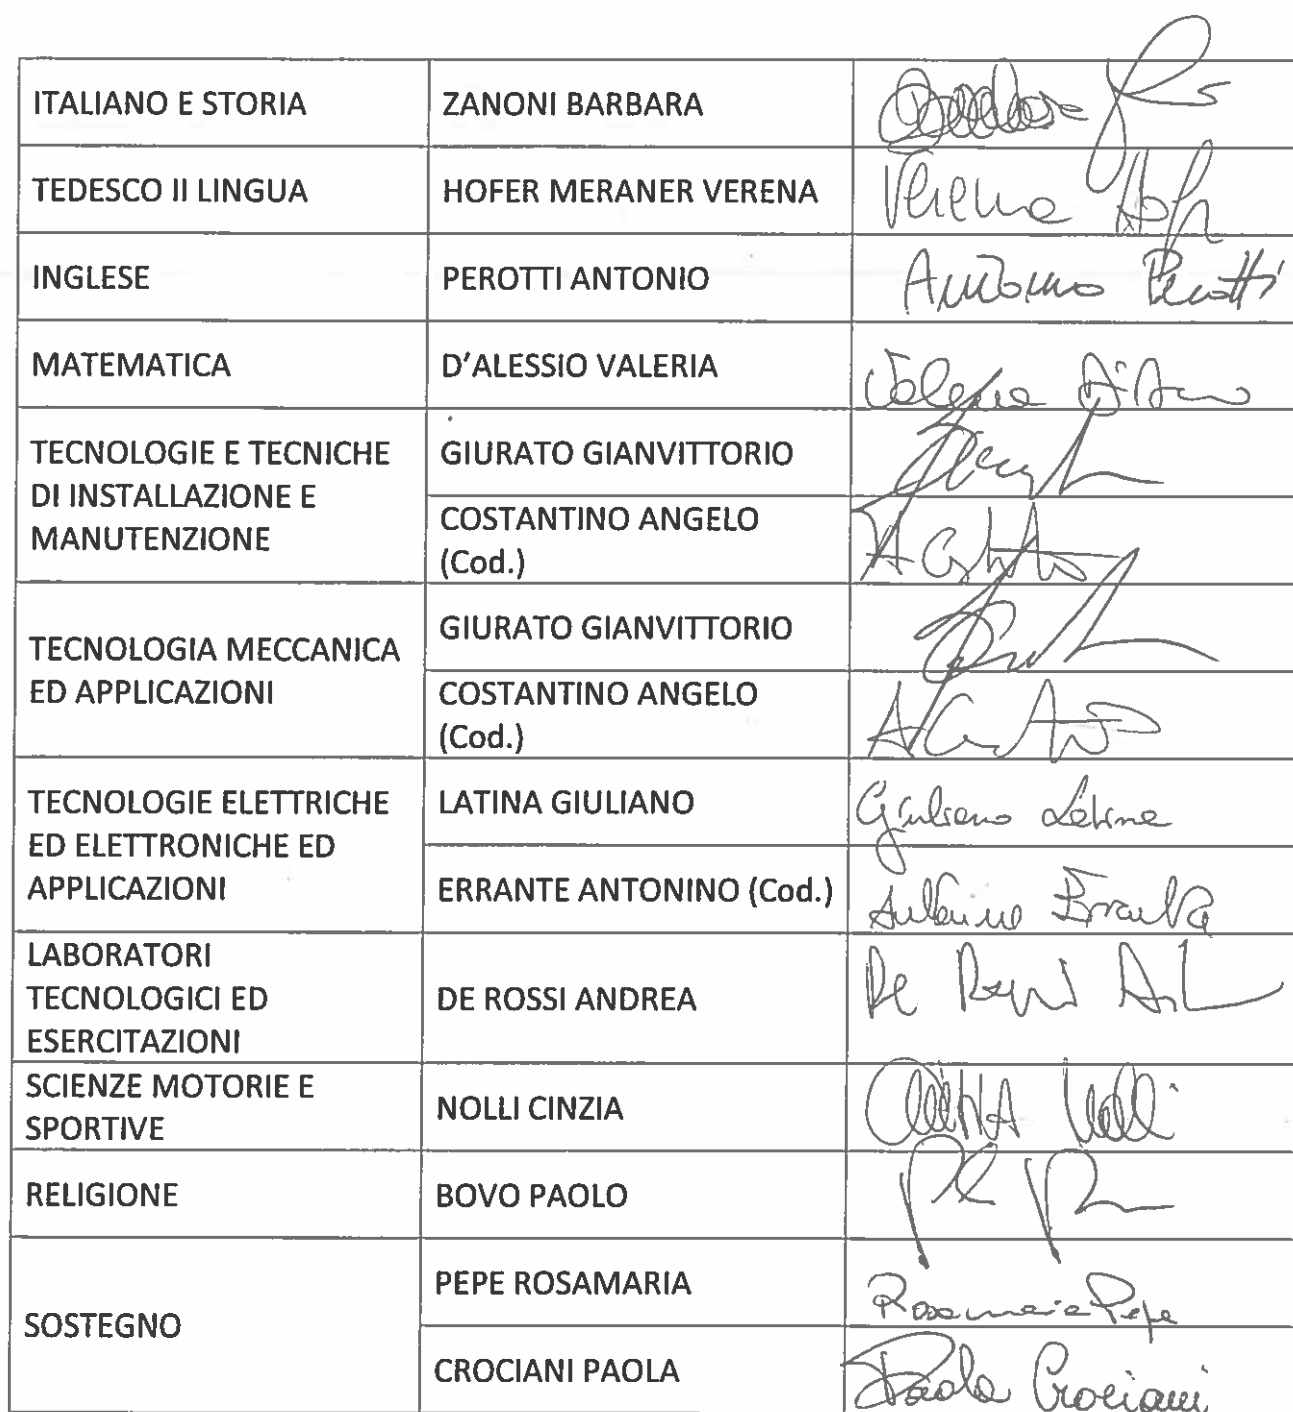 ITALIANO E STORIA
ZANONI BARBARA
TEDESCO II LINGUA
HOFER MERANER VERENA
Verena Hofer
INGLESE
PEROTTI ANTONIO
Antonio Perotti
MATEMATICA
D'ALESSIO VALERIA
Valeria
TECNOLOGIE E TECNICHE
DI INSTALLAZIONE E
MANUTENZIONE
GIURATO GIANVITTORIO
COSTANTINO ANGELO
(Cod.)
TECNOLOGIA MECCANICA
ED APPLICAZIONI
GIURATO GIANVITTORIO
COSTANTINO ANGELO
(Cod.)
TECNOLOGIE ELETTRICHE
ED ELETTRONICHE ED
APPLICAZIONI
LATINA GIULIANO
Giuliano Latina
ERRANTE ANTONINO (Cod.)
Antonino Errante
LABORATORI
TECNOLOGICI ED
ESERCITAZIONI
DE ROSSI ANDREA
De Rossi
SCIENZE MOTORIE E
SPORTIVE
NOLLI CINZIA
Nolli
RELIGIONE
BOVO PAOLO
SOSTEGNO
PEPE ROSAMARIA
Rosamaria Pepe
CROCIANI PAOLA
Paola Crociani